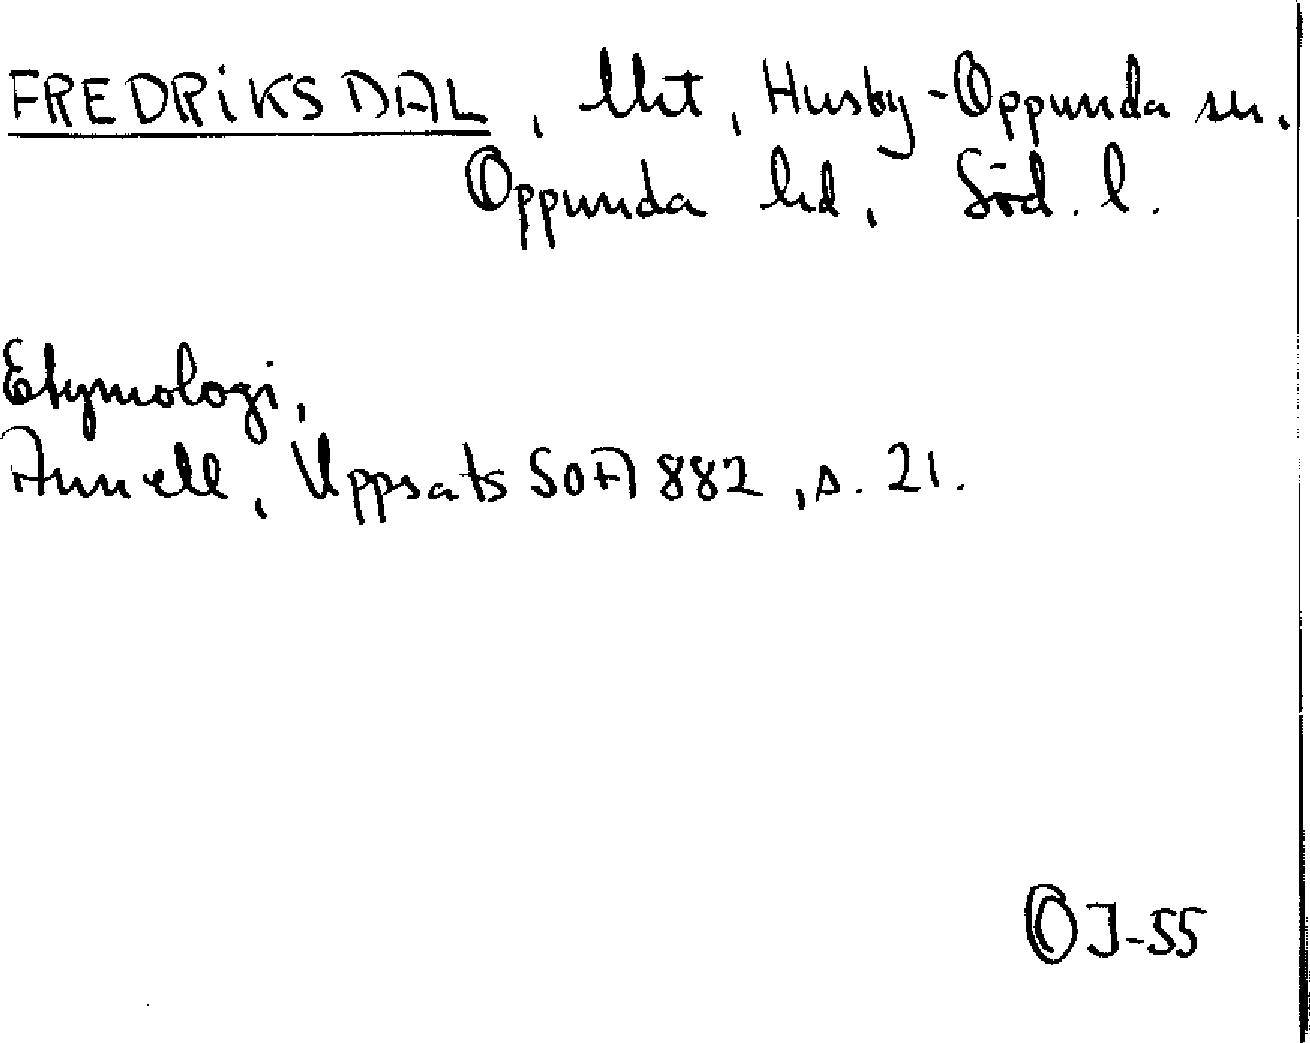 FREDRIKSDAL, lht, Husby-Oppunda sn.
Oppunda hd, Söd. l.
Etymologi,
Annell, Uppsats SOFI 882, s. 21.
OJ-55